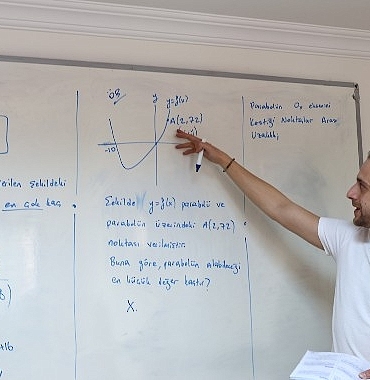 ÖR
y
y=f(x)
A(2,72)
-10
Şekilde y=f(x) parabolü ve
parabolün üzerindeki A(2,72)
noktası verilmiştir.
Buna göre, parabolün alabileceği
en küçük değer kaçtır?
X.
Parabolün Ox eksenini
Kestiği Noktalar Arası
Uzaklık;
erilen şekildeki
en çok kaç